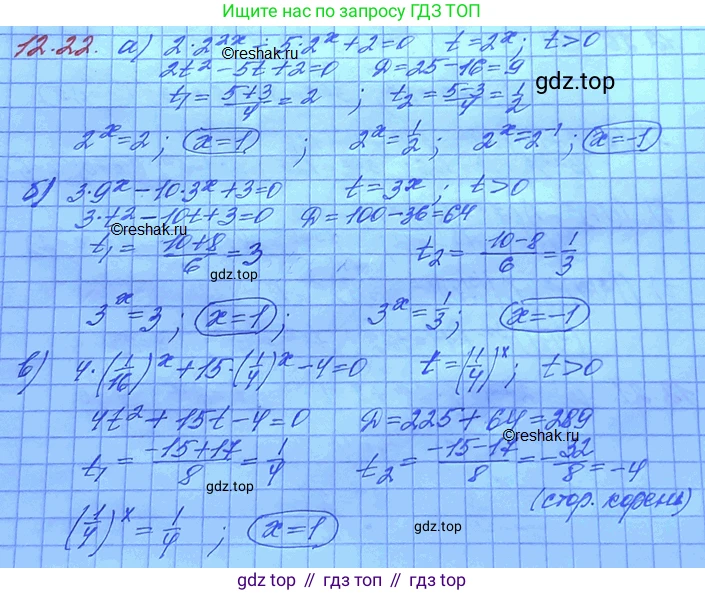 Ищите нас по запросу ГДЗ ТОП
12.22. а) 2·2^{2x} - 5·2^x+2=0 t=2^x; t>0
©reshak.ru
2t²-5t+2=0 D=25-16=9
gdz.top
t₁=\frac{5+3}{4}=2 ; t₂=\frac{5-3}{4}=\frac{1}{2}
2^x=2; x=1 ; 2^x=\frac{1}{2}; 2^x=2^{-1}; x=-1
б) 3·9^x-10·3^x+3=0 t=3^x; t>0
3·t²-10t+3=0 D=100-36=64
©reshak.ru
t₁=\frac{10+8}{6}=3 t₂=\frac{10-8}{6}=\frac{1}{3}
gdz.top
3^x=3; x=1; 3^x=\frac{1}{3}; x=-1
в) 4·(\frac{1}{16})^x+15·(\frac{1}{4})^x-4=0 t=(\frac{1}{4})^x; t>0
4t²+15t-4=0 D=225+64=289
©reshak.ru
t₁=\frac{-15+17}{8}=\frac{1}{4} t₂=\frac{-15-17}{8}=-\frac{32}{8}=-4
gdz.top
(стор. корень)
(\frac{1}{4})^x=\frac{1}{4}; x=1
gdz.top
gdz top // гдз топ // gdz.top